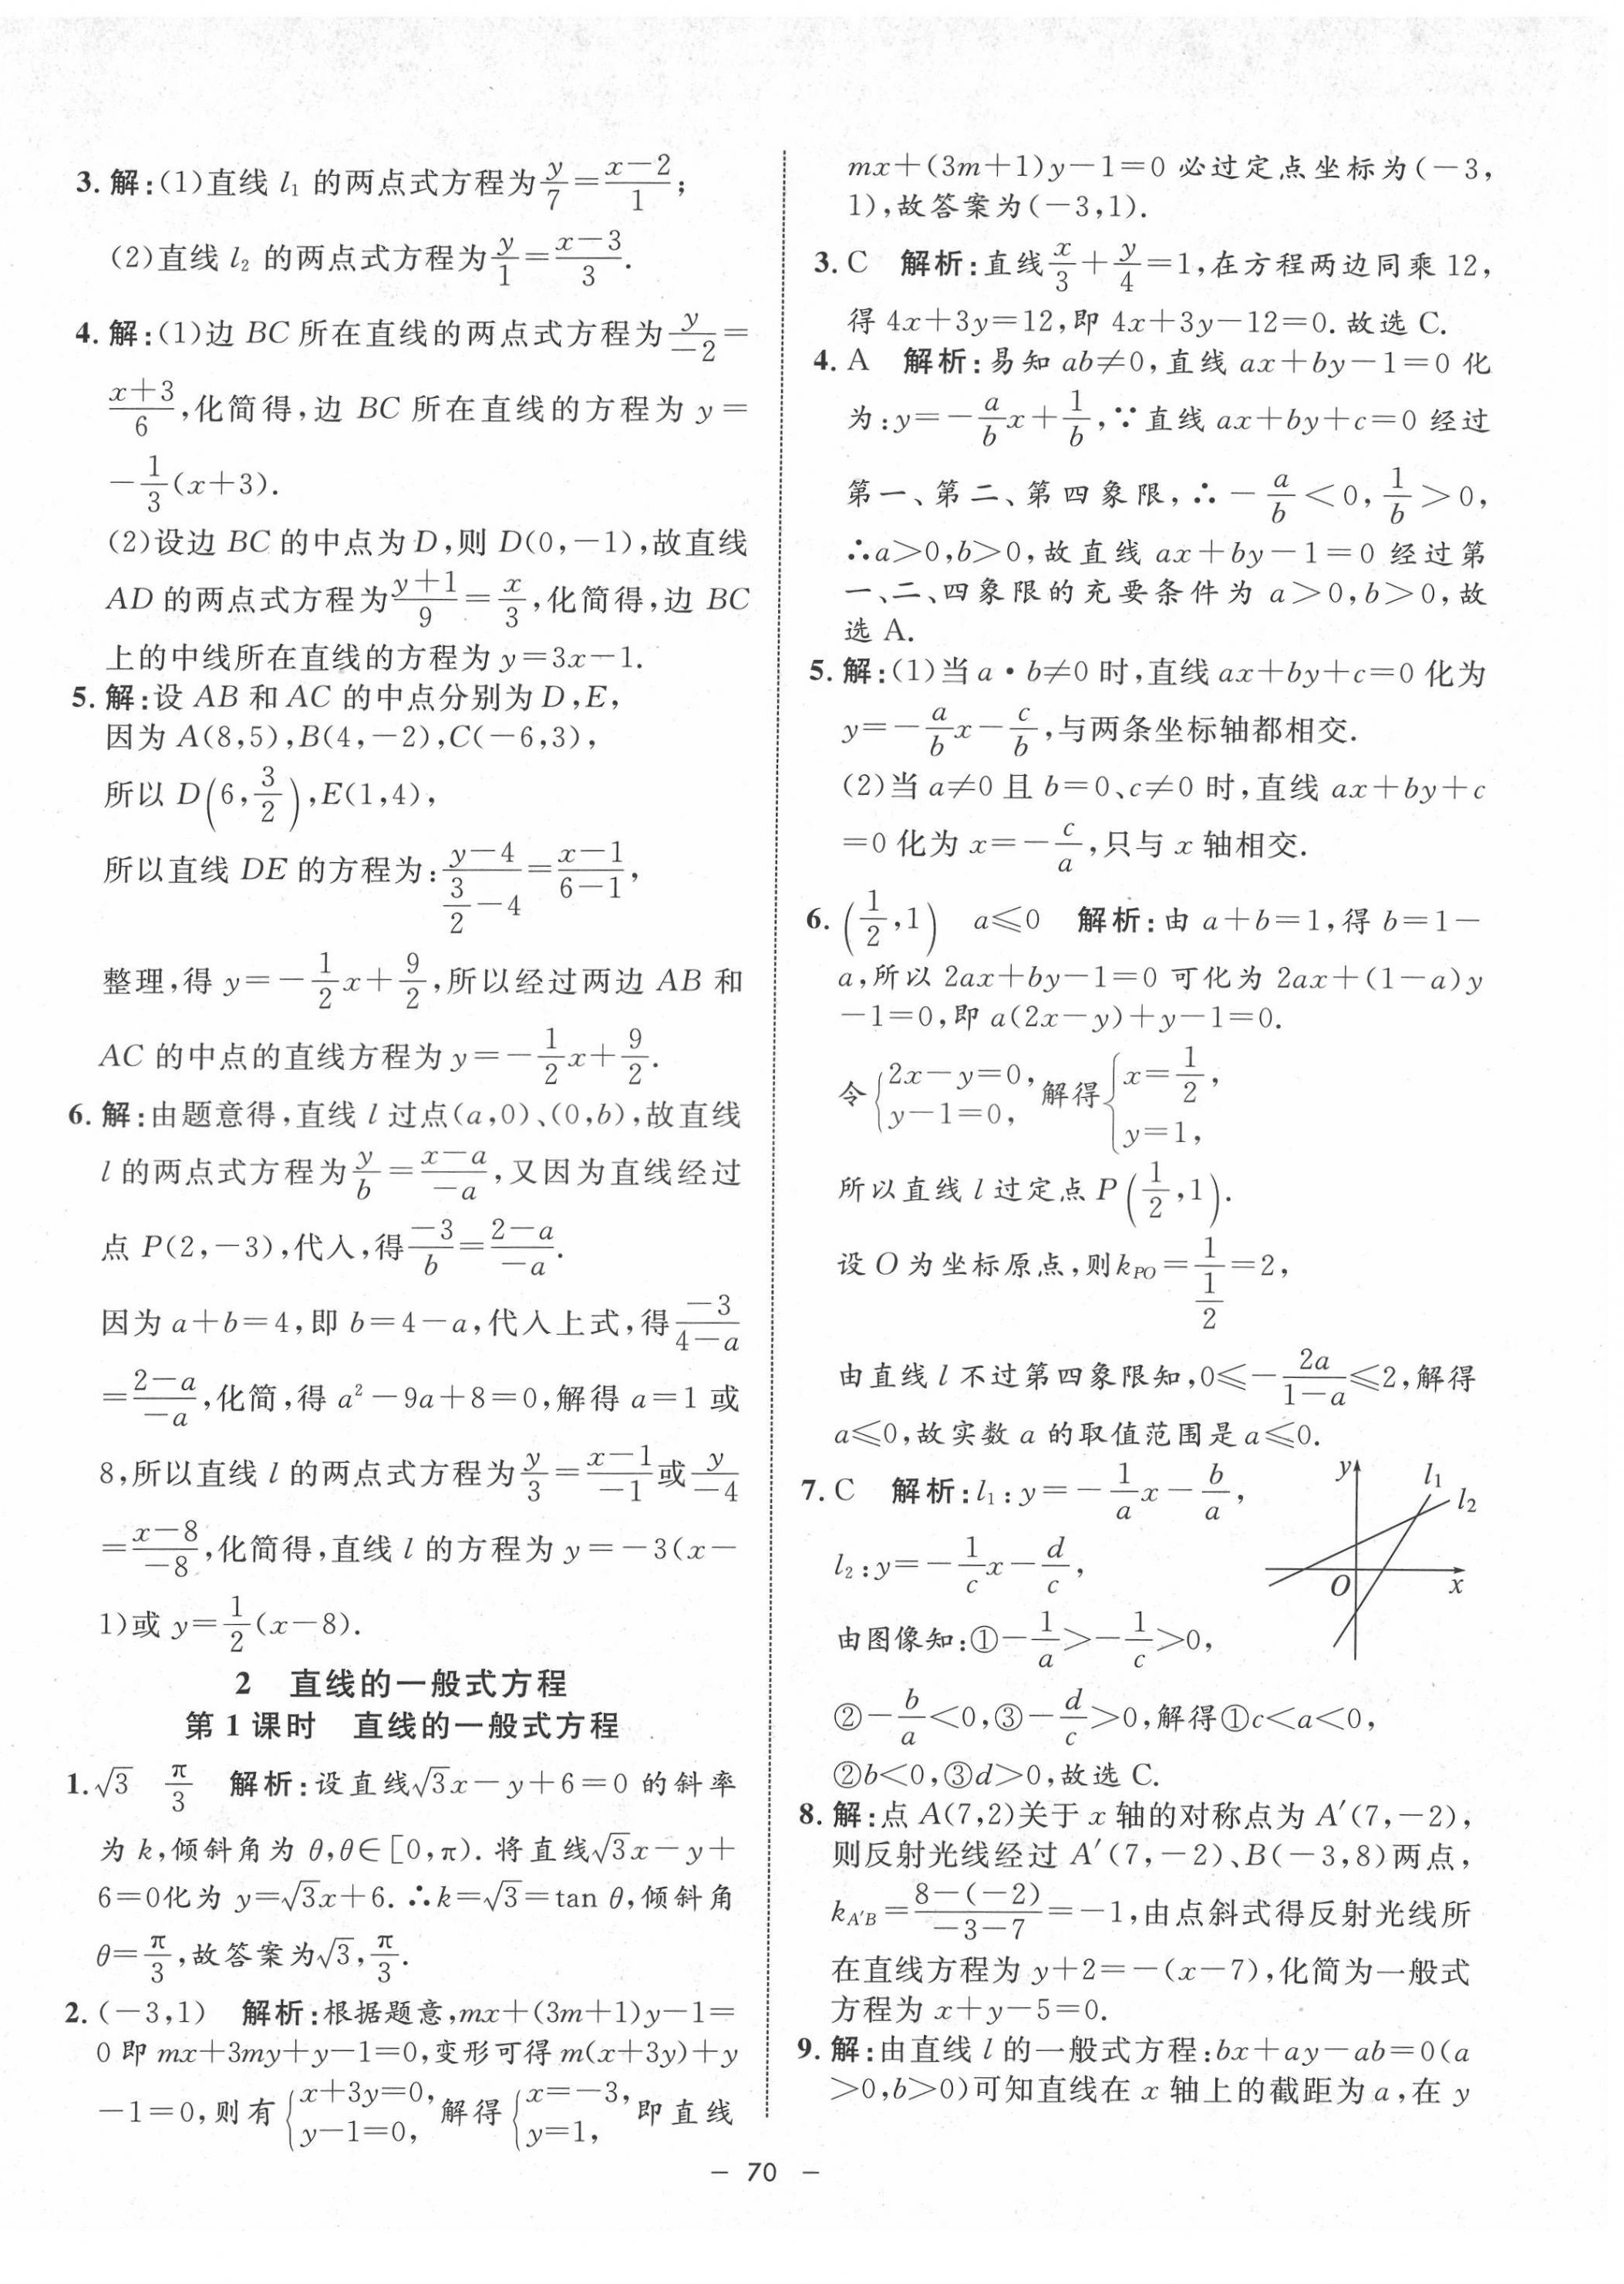 3. 解:(1)直线 l₁ 的两点式方程为 y/7=(x−2)/1;
(2)直线 l₂ 的两点式方程为 y/1=(x−3)/3.
4. 解:(1)边 BC 所在直线的两点式方程为 y/−2=
(x+3)/6,化简得,边 BC 所在直线的方程为 y=
−1/3(x+3).
(2)设边 BC 的中点为 D,则 D(0,−1),故直线
AD 的两点式方程为 (y+1)/9=x/3,化简得,边 BC
上的中线所在直线的方程为 y=3x−1.
5. 解:设 AB 和 AC 的中点分别为 D,E,
因为 A(8,5),B(4,−2),C(−6,3),
所以 D(6,3/2),E(1,4),
所以直线 DE 的方程为:(y−4)/(3/2−4)=(x−1)/(6−1),
整理,得 y=−1/2x+9/2,所以经过两边 AB 和
AC 的中点的直线方程为 y=−1/2x+9/2.
6. 解:由题意得,直线 l 过点(a,0)、(0,b),故直线
l 的两点式方程为 y/b=(x−a)/−a,又因为直线经过
点 P(2,−3),代入,得 −3/b=(2−a)/−a.
因为 a+b=4,即 b=4−a,代入上式,得 −3/(4−a)
=(2−a)/−a,化简,得 a²−9a+8=0,解得 a=1 或
8,所以直线 l 的两点式方程为 y/3=(x−1)/−1或 y/−4
=(x−8)/−8,化简得,直线 l 的方程为 y=−3(x−
1)或 y=1/2(x−8).
2 直线的一般式方程
第 1 课时 直线的一般式方程
1. √3 π/3 解析:设直线√3x−y+6=0 的斜率
为 k,倾斜角为 θ,θ∈[0,π). 将直线√3x−y+
6=0化为 y=√3x+6. ∴k=√3=tan θ,倾斜角
θ=π/3,故答案为√3,π/3.
2. (−3,1) 解析:根据题意,mx+(3m+1)y−1=
0 即 mx+3my+y−1=0,变形可得 m(x+3y)+y
−1=0,则有{x+3y=0, y−1=0,解得{x=−3, y=1,即直线
mx+(3m+1)y−1=0 必过定点坐标为(−3,
1),故答案为(−3,1).
3. C 解析:直线 x/3+y/4=1,在方程两边同乘 12,
得 4x+3y=12,即 4x+3y−12=0. 故选 C.
4. A 解析:易知 ab≠0,直线 ax+by−1=0 化
为:y=−a/bx+1/b,∵直线 ax+by+c=0 经过
第一、第二、第四象限,∴−a/b<0,1/b>0,
∴a>0,b>0,故直线 ax+by−1=0 经过第
一、二、四象限的充要条件为 a>0,b>0,故
选 A.
5. 解:(1)当 a·b≠0 时,直线 ax+by+c=0 化为
y=−a/bx−c/b,与两条坐标轴都相交.
(2)当 a≠0 且 b=0、c≠0 时,直线 ax+by+c
=0 化为 x=−c/a,只与 x 轴相交.
6. (1/2,1) a≤0 解析:由 a+b=1,得 b=1−
a,所以 2ax+by−1=0 可化为 2ax+(1−a)y
−1=0,即 a(2x−y)+y−1=0.
令{2x−y=0, y−1=0,解得{x=1/2, y=1,
所以直线 l 过定点 P(1/2,1).
设 O 为坐标原点,则k_PO=1/(1/2)=2,
由直线 l 不过第四象限知,0≤−2a/(1−a)≤2,解得
a≤0,故实数 a 的取值范围是 a≤0.
7. C 解析:l₁:y=−1/ax−b/a,
l₂:y=−1/cx−d/c,
由图像知:①−1/a>−1/c>0,
②−b/a<0,③−d/c>0,解得①c<a<0,
②b<0,③d>0,故选 C.
y
l₁
l₂
O
x
8. 解:点 A(7,2)关于 x 轴的对称点为 A′(7,−2),
则反射光线经过 A′(7,−2)、B(−3,8)两点,
k_A′B=(8−(−2))/(−3−7)=−1,由点斜式得反射光线所
在直线方程为 y+2=−(x−7),化简为一般式
方程为 x+y−5=0.
9. 解:由直线 l 的一般式方程:bx+ay−ab=0(a
>0,b>0)可知直线在 x 轴上的截距为 a,在 y
— 70 —